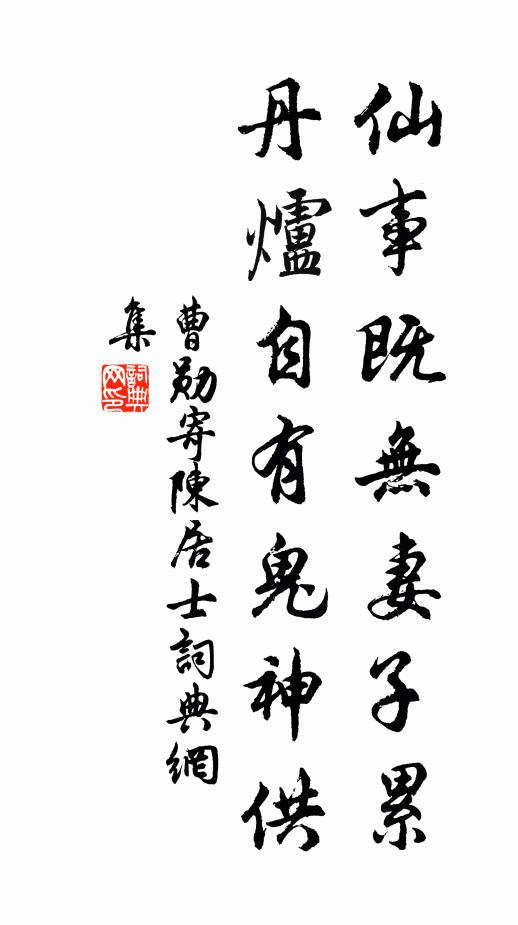 仙事既無妻子累
丹爐自有鬼神供
曹勛寄陳居士詞典網
集
詞典
网印